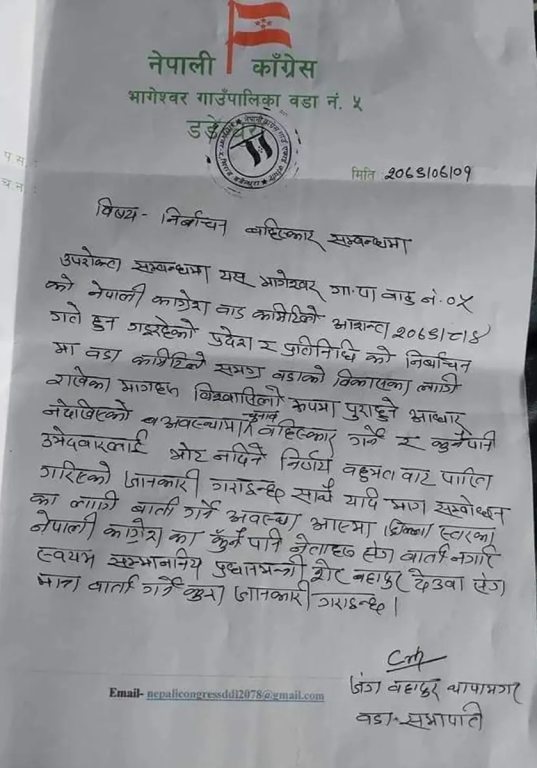 नेपाली काँग्रेस
भागेश्वर गाउँपालिका वडा नं. ५
डडेल्धुरा
प.स.
च.न.
मिति २०७९/०७/०१
विषय- निर्वाचन बहिस्कार सम्बन्धमा
उपरोक्त सम्बन्धमा यस भागेश्वर गा.पा वाड नं. ०५
को नेपाली काग्रेस वाड कमिटिले आसन्न २०७९/८/४
गते हुन गइरहेको प्रदेश र प्रतिनिधि को निर्वाचन
मा वडा कमिटिले समग्र वडाको विकासका लागि
राखेका मागहरु विश्वासिलो रूपमा पुराहुने आधार
नदेखिएको व अवस्थामा चुनाव बहिस्कार गर्ने र कुनैपनि
उमेदवारलाई भोट नदिने निर्णय बहुमत बाट पारित
गरिएको जानकारी गराइन्छ साथै यदि माग सम्बोधन
का लागि बार्ता गर्ने अवस्था आएमा जिल्ला स्तरका
नेपाली काग्रेस का कुनै पनि नेताहरु संग वार्ता नगरि
स्वयम सम्माननिय प्रधानमन्त्री शेर बहादुर देउवा संग
मात्र बार्ता गर्ने कुरा जानकारी गराइन्छ।
जंग बहादुर थापामगर
वडा-सभापति
Email- nepalicongressddl2078@gmail.com